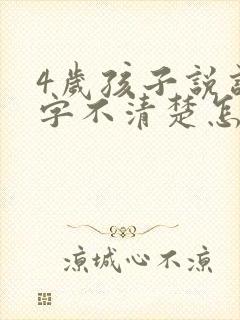 4歲孩子說話
字不清楚怎
凉城心不凉